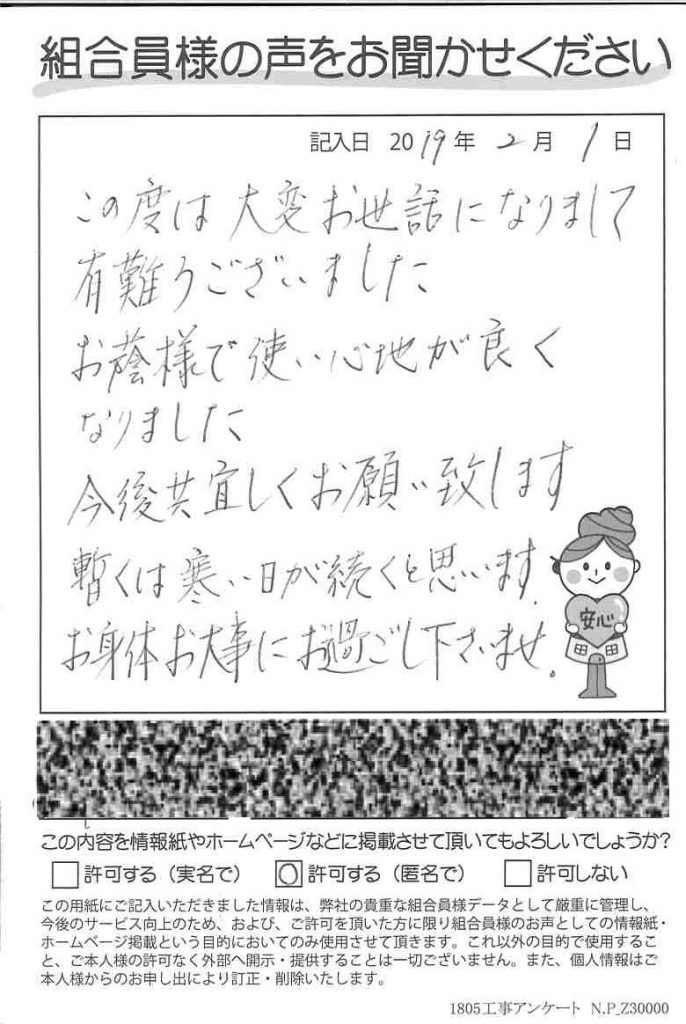 組合員様の声をお聞かせください
記入日 2019年 2月 1日
この度は大変お世話になりまして
有難うございました
お蔭様で使い心地が良く
なりました
今後共宜しくお願い致します
暫くは寒い日が続くと思います.
お身体お大事にお過ごし下さいませ。
安心
この内容を情報紙やホームページなどに掲載させて頂いてもよろしいでしょうか?
許可する(実名で) ○許可する(匿名で) 許可しない
この用紙にご記入いただきました情報は、弊社の貴重な組合員様データとして厳重に管理し、
今後のサービス向上のため、および、ご許可を頂いた方に限り組合員様のお声としての情報紙・
ホームページ掲載という目的においてのみ使用させて頂きます。これ以外の目的で使用するこ
と、ご本人様の許可なく外部へ開示・提供することは一切ございません。また、個人情報はご
本人様からのお申し出により訂正・削除いたします。
1805工事アンケート N.P_Z30000